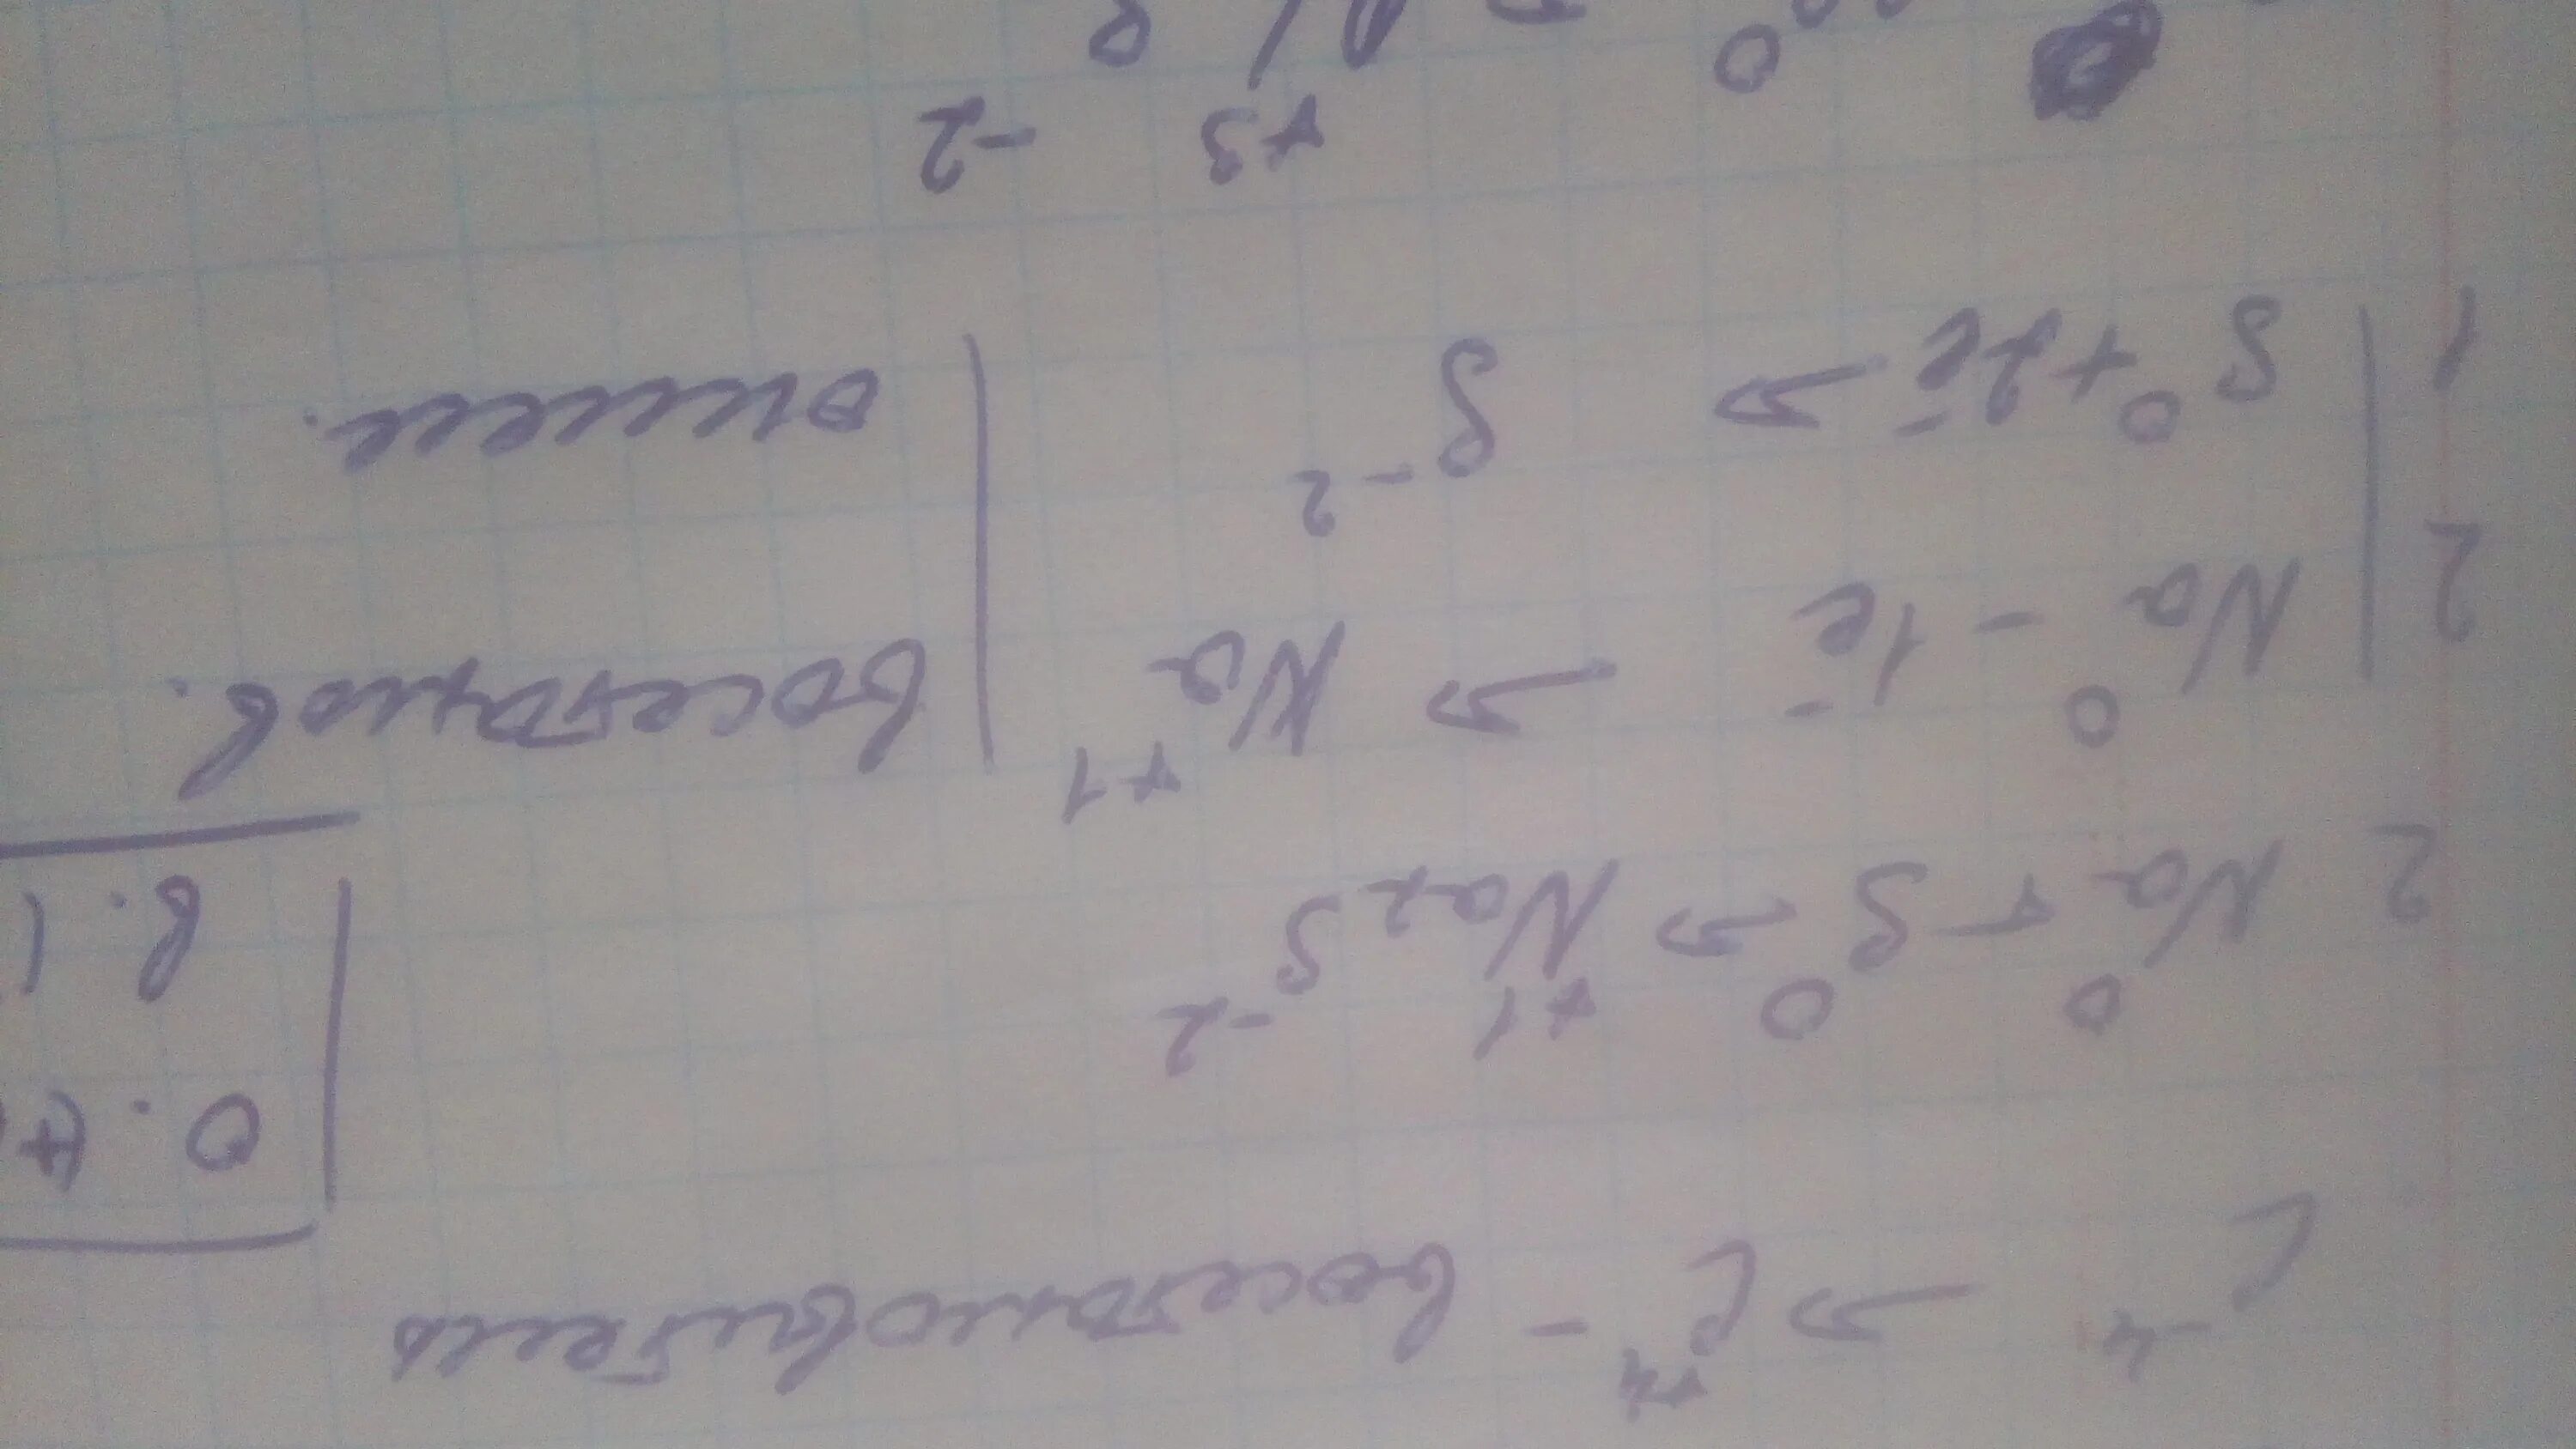 C⁻⁴ → C⁺⁴ - восстановитель
0 0 +1 -2
2 Na + S → Na₂ S
2 | Na⁰ - 1e⁻ → Na⁺¹ | восстанов.
1 | S⁰ + 2e⁻ → S⁻² | окисл.
0 +3 -2
О.
В. 1